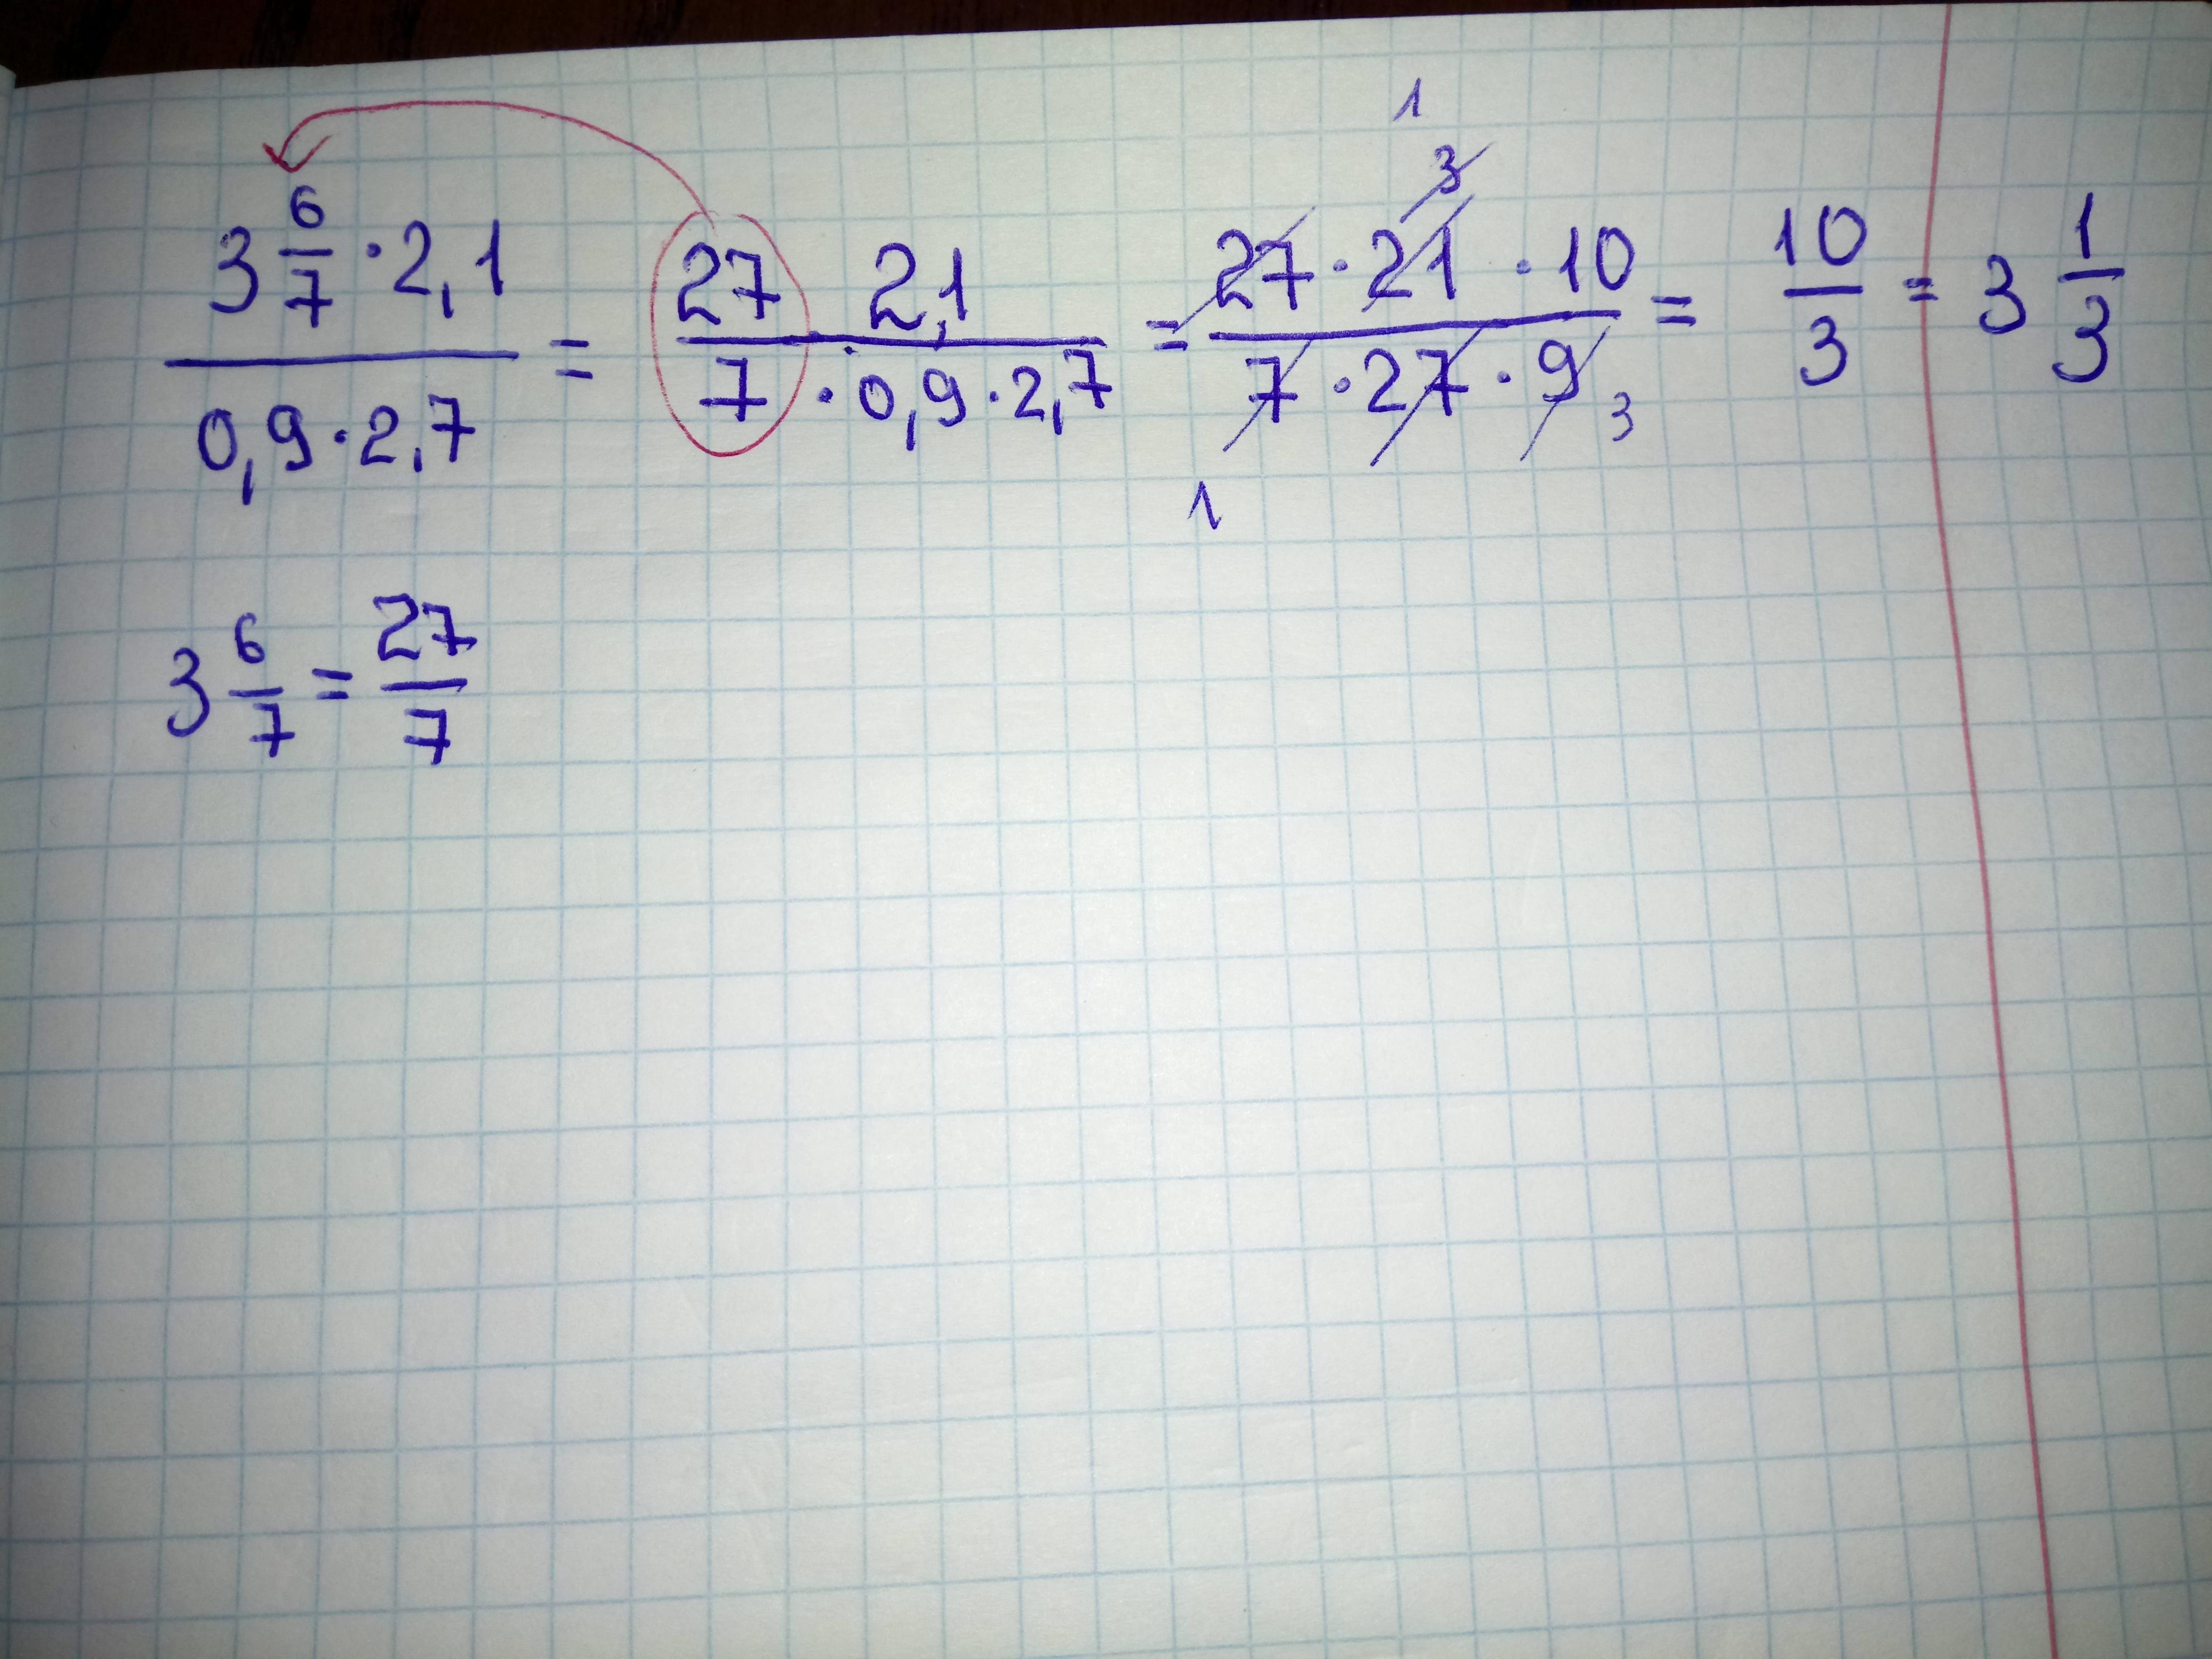 3 6/7 · 2,1 / 0,9 · 2,7 = 27/7 · 2,1 / 0,9 · 2,7 = 27 · 21 · 10 / 7 · 27 · 9 = 10/3 = 3 1/3
1 3
3
1
3 6/7 = 27/7